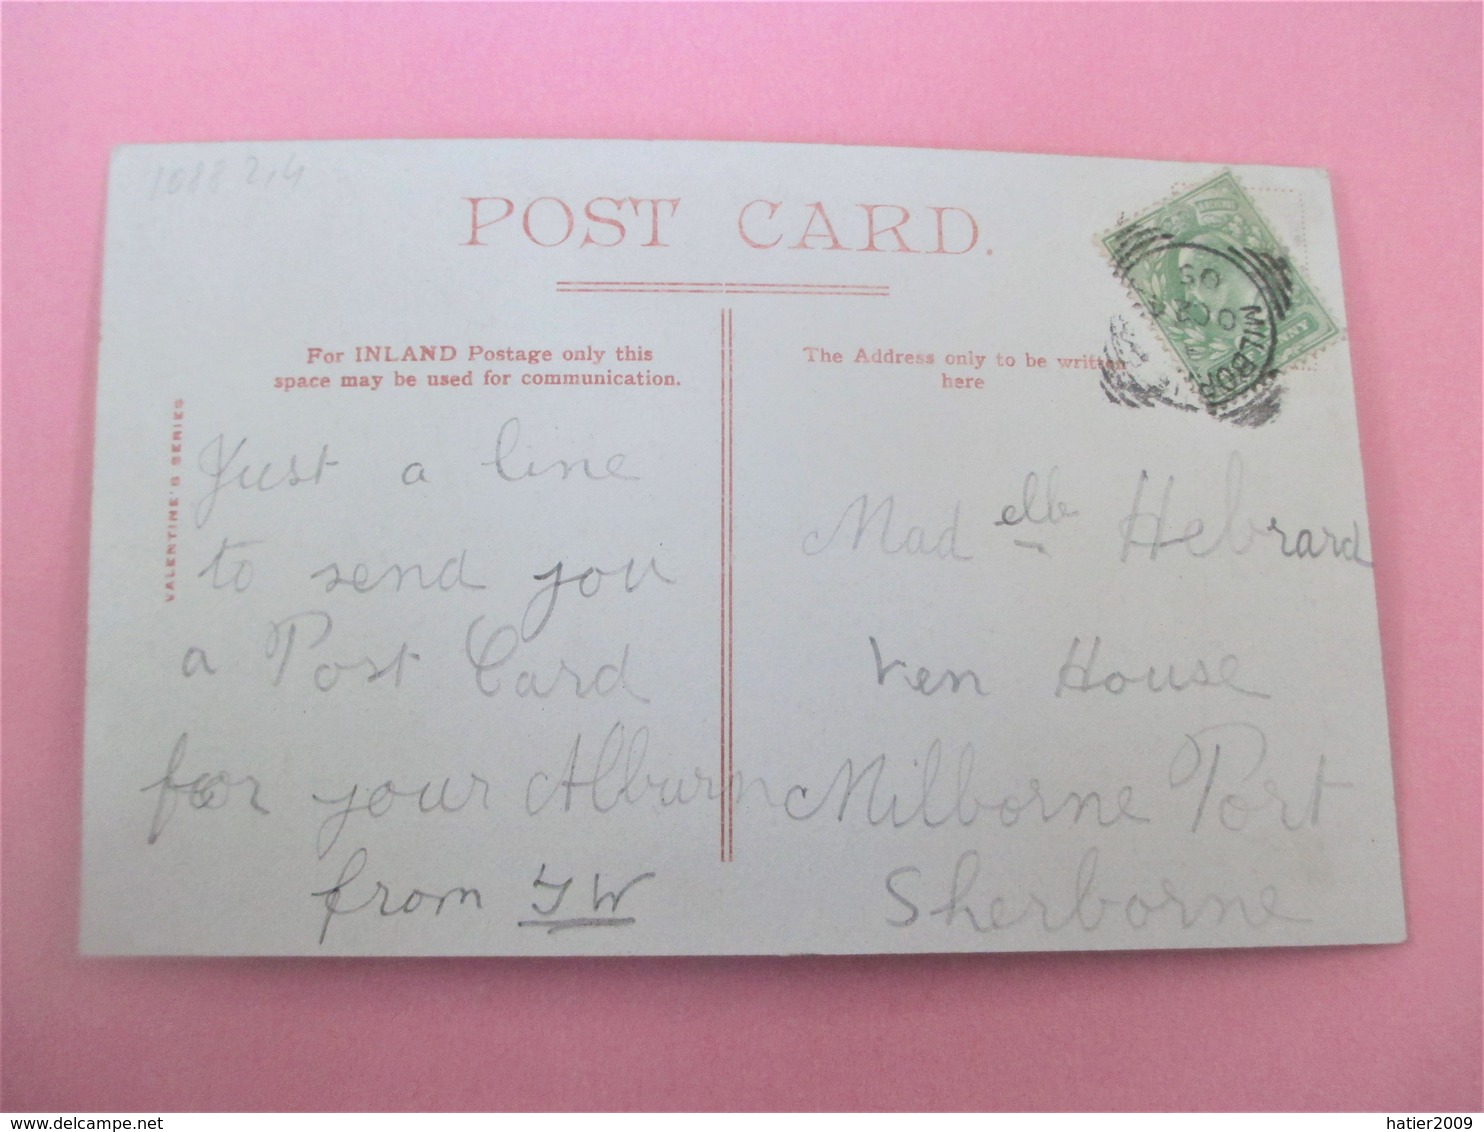 1088 2,4
POST CARD.
For INLAND Postage only this
space may be used for communication.
The Address only to be written
here
VALENTINE'S SERIES
MILBOR
OC
05
NNY
Just a line
to send you
a Post Card
for your Alburn
from
Madelle Hebrard
Ven House
Milborne Port
Sherborne
delcampe.net
hatier2009